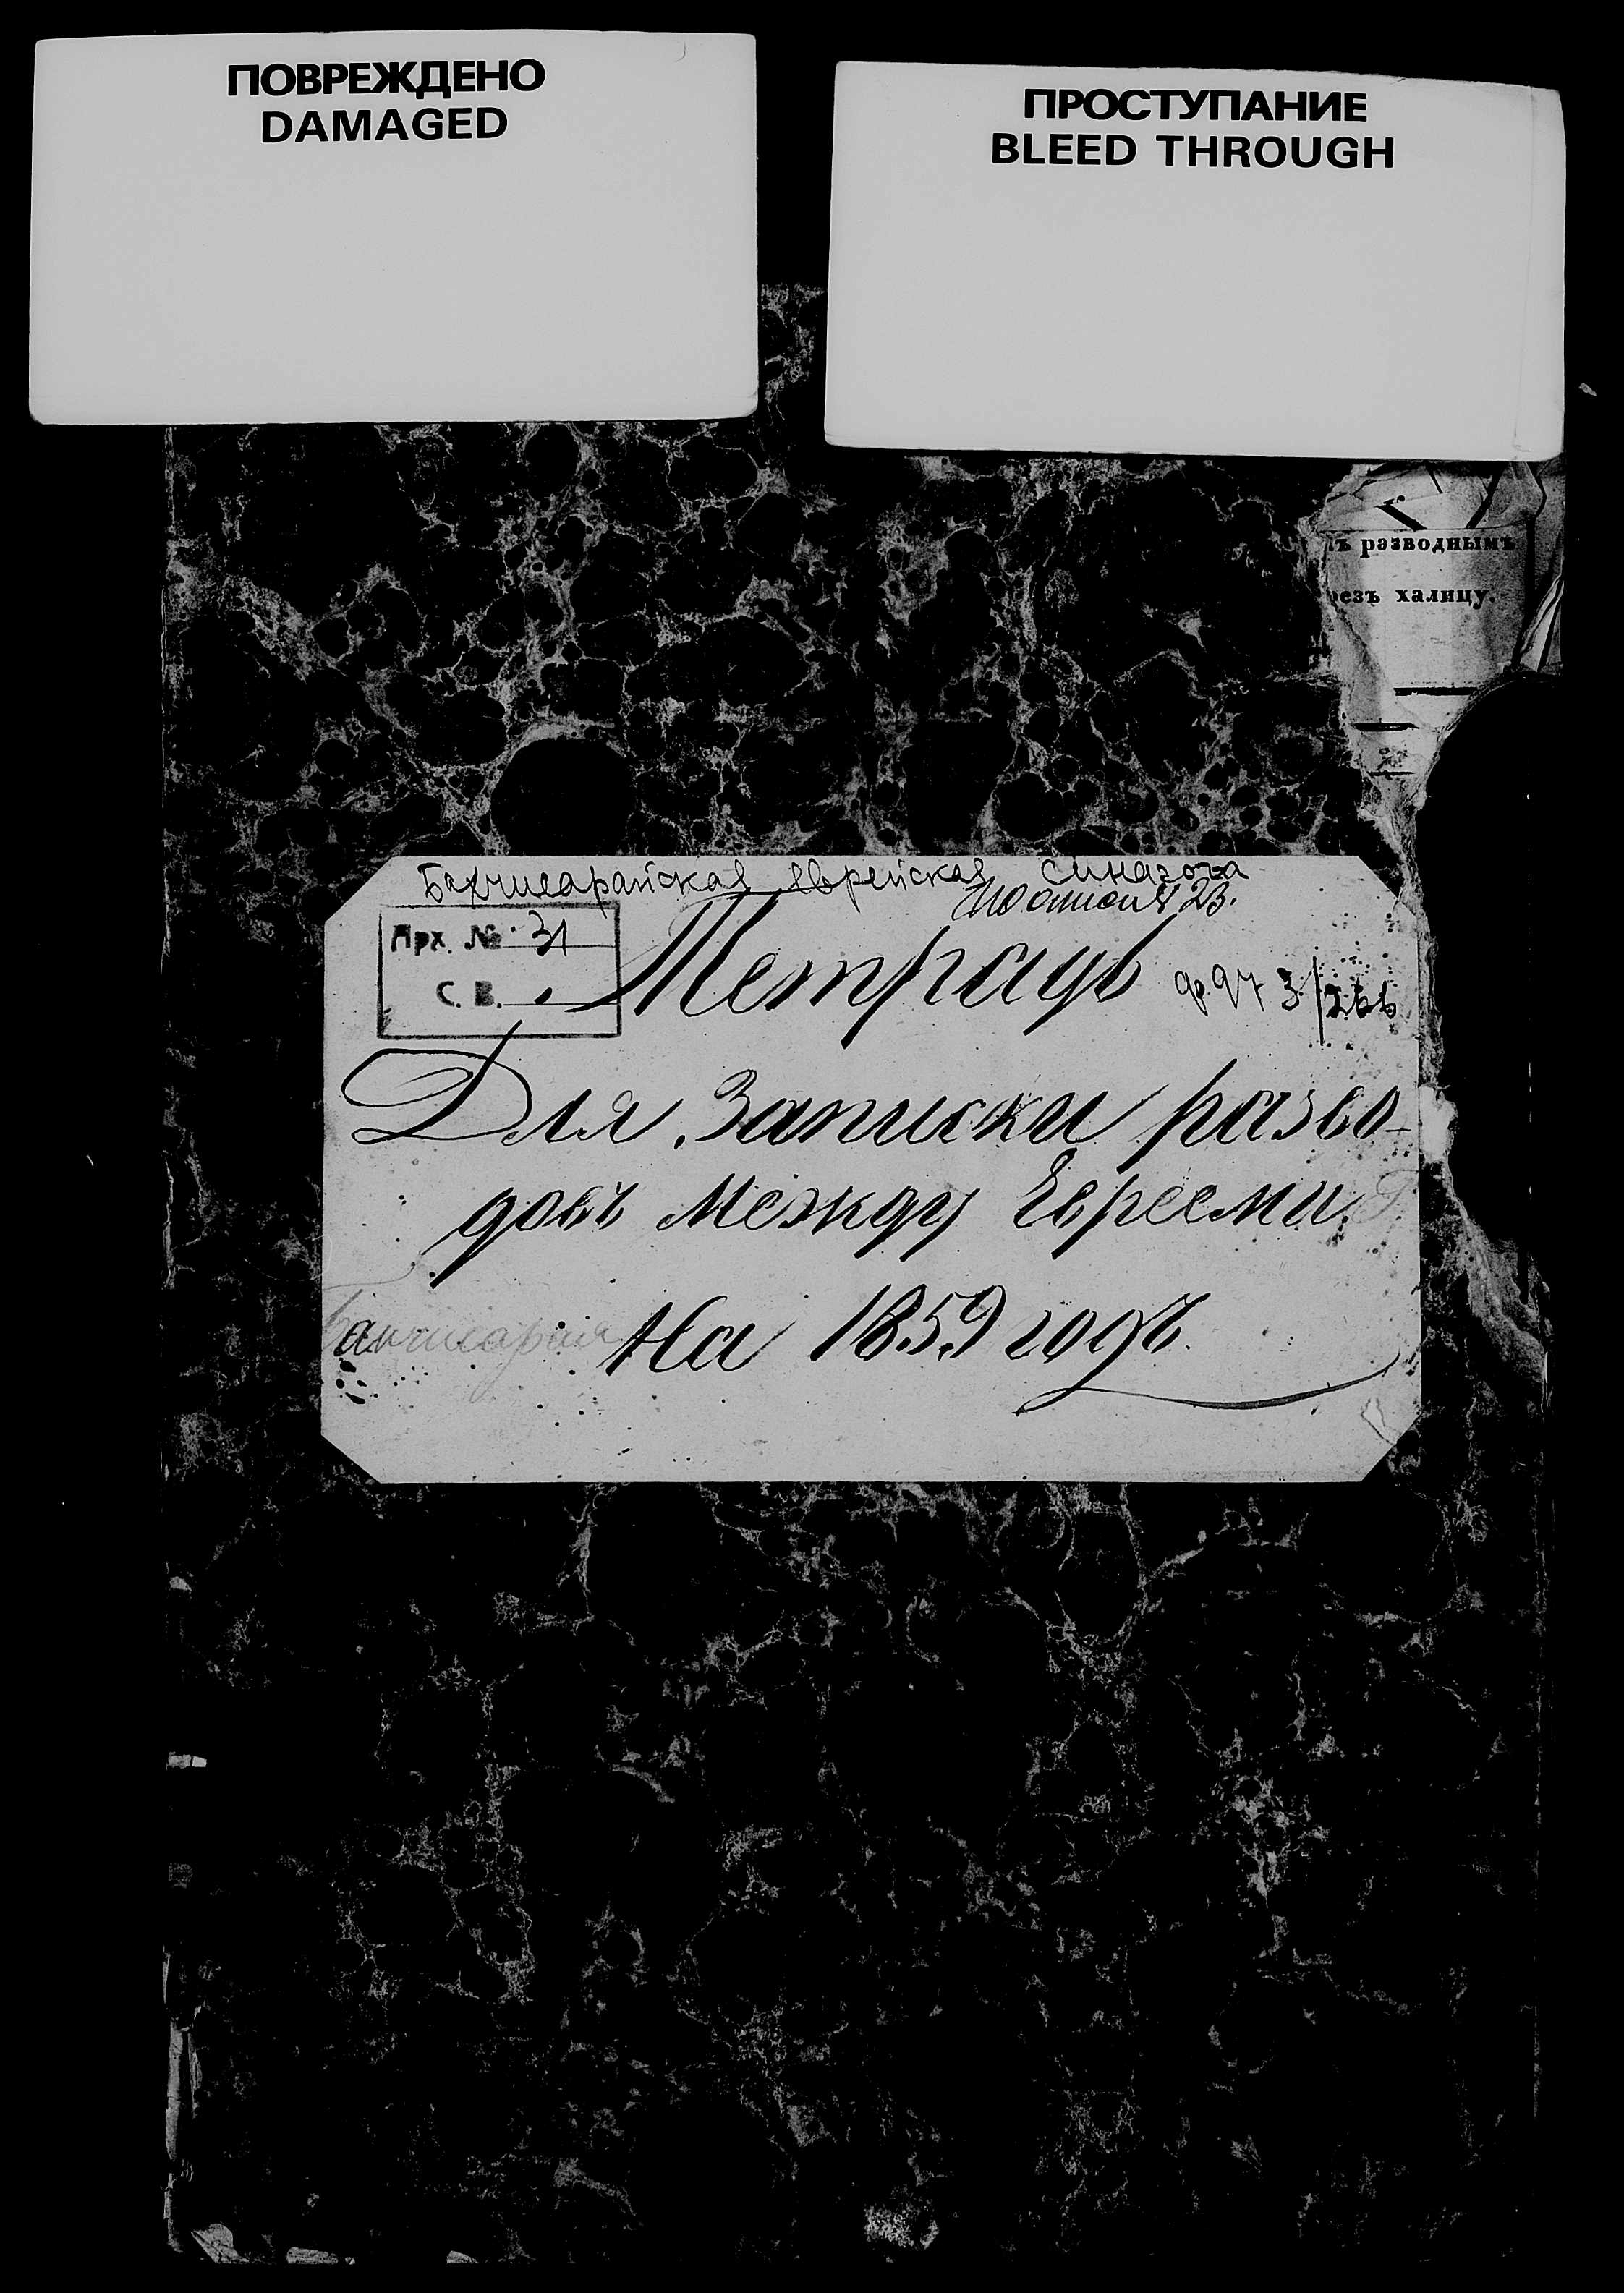 ПОВРЕЖДЕНО
DAMAGED
ПРОСТУПАНИЕ
BLEED THROUGH
ъ разводнымъ
резъ халицу.
Бахчисарайская еврейская синагога
Арх. № 31
С. В.
Тетрадь
Для Записки разво-
довъ Между Евреями
Бахчисарая
На 1859 годъ.